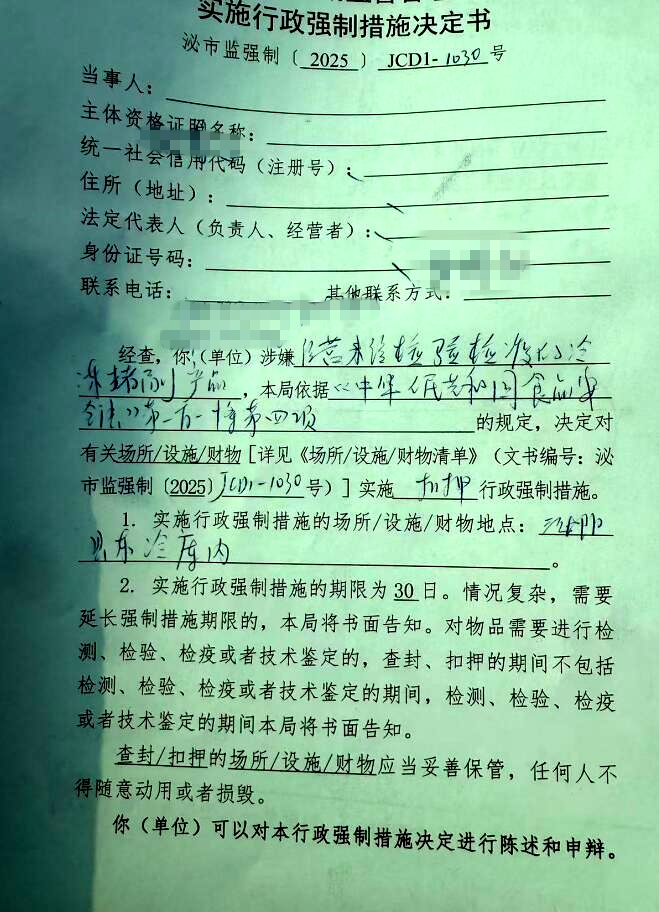 实施行政强制措施决定书
泌市监强制〔2025〕JCD1-1030号
当事人：
主体资格证照名称：
统一社会信用代码（注册号）：
住所（地址）：
法定代表人（负责人、经营者）：
身份证号码：
联系电话： 其他联系方式：
经查，你（单位）涉嫌 经营未经检验检疫的冷
冻猪副产品，本局依据《中华人民共和国食品安
全法》第一百一十条第四项 的规定，决定对
有关场所/设施/财物[详见《场所/设施/财物清单》（文书编号：泌
市监强制〔2025〕JCD1-1030号）]实施 扣押 行政强制措施。
1. 实施行政强制措施的场所/设施/财物地点：
冷库内。
2. 实施行政强制措施的期限为30日。情况复杂，需要
延长强制措施期限的，本局将书面告知。对物品需要进行检
测、检验、检疫或者技术鉴定的，查封、扣押的期间不包括
检测、检验、检疫或者技术鉴定的期间，检测、检验、检疫
或者技术鉴定的期间本局将书面告知。
查封/扣押的场所/设施/财物应当妥善保管，任何人不
得随意动用或者损毁。
你（单位）可以对本行政强制措施决定进行陈述和申辩。